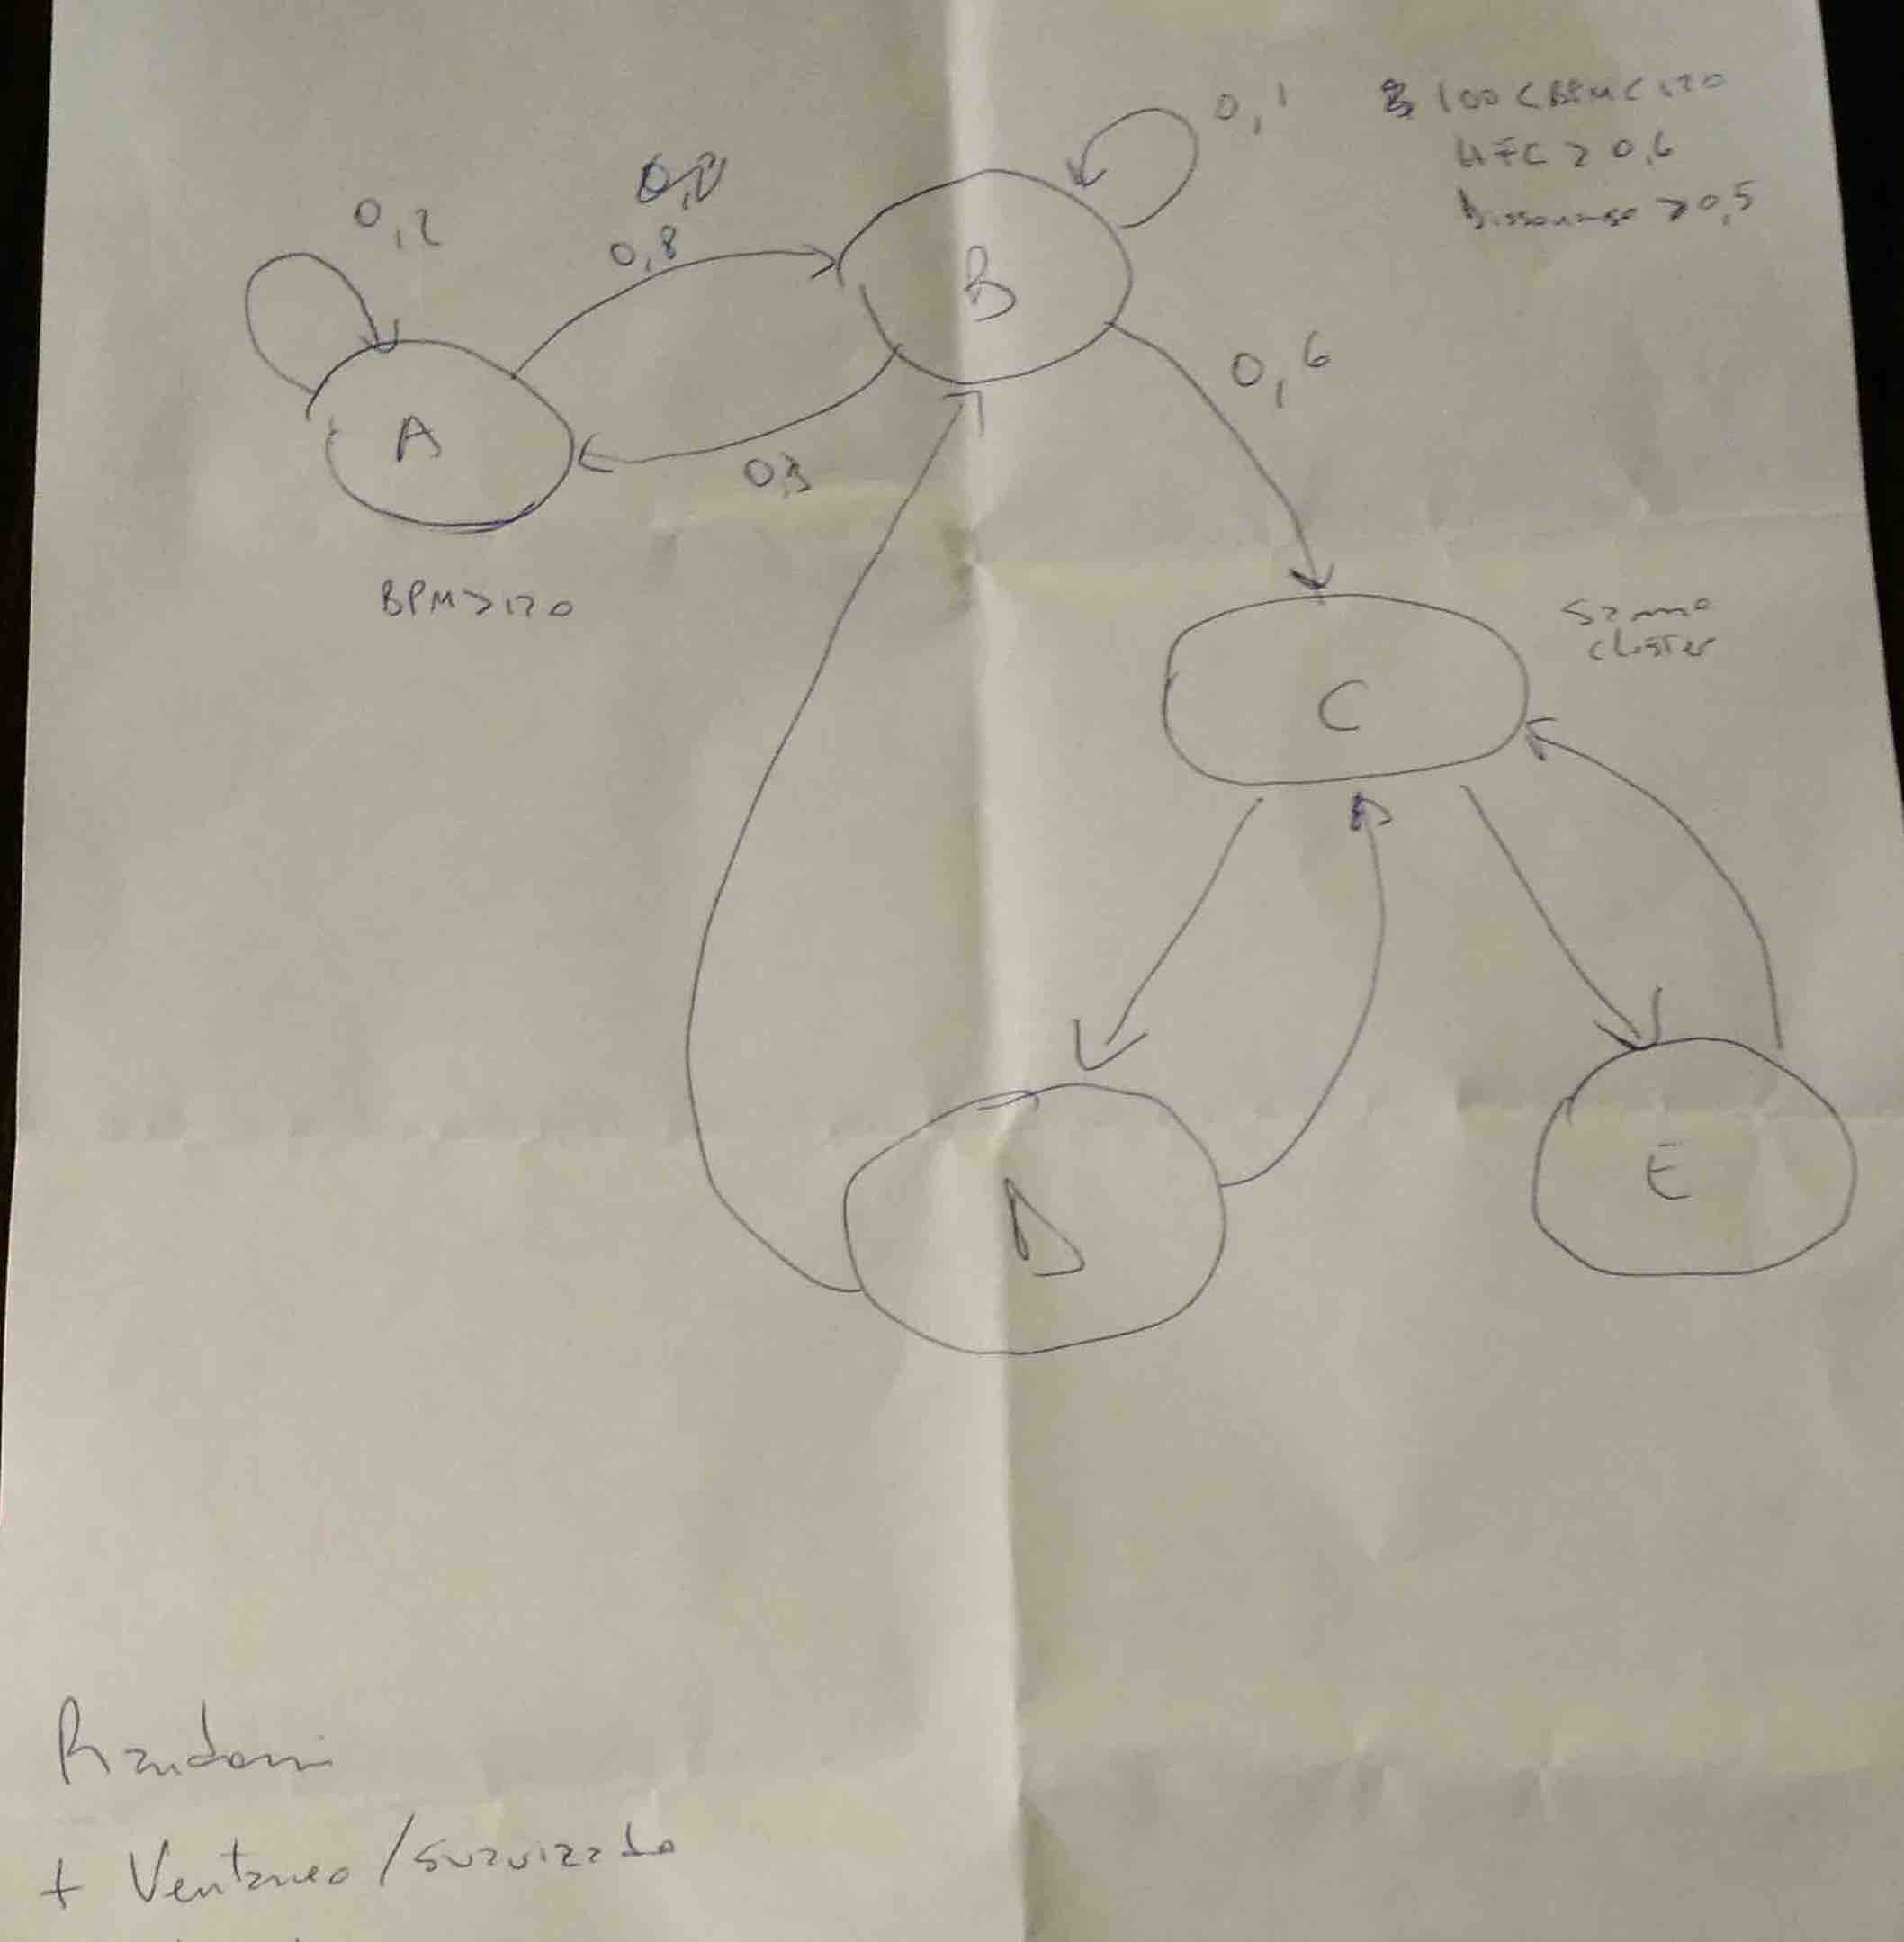 0,1
100 < BPM < 120
HFC > 0,6
Dissonance > 0,5
0,2
0,8
B
0,6
A
0,3
BPM > 120
Sanno
cluster
C
E
D
Random
+ Ventaneo / suavizado